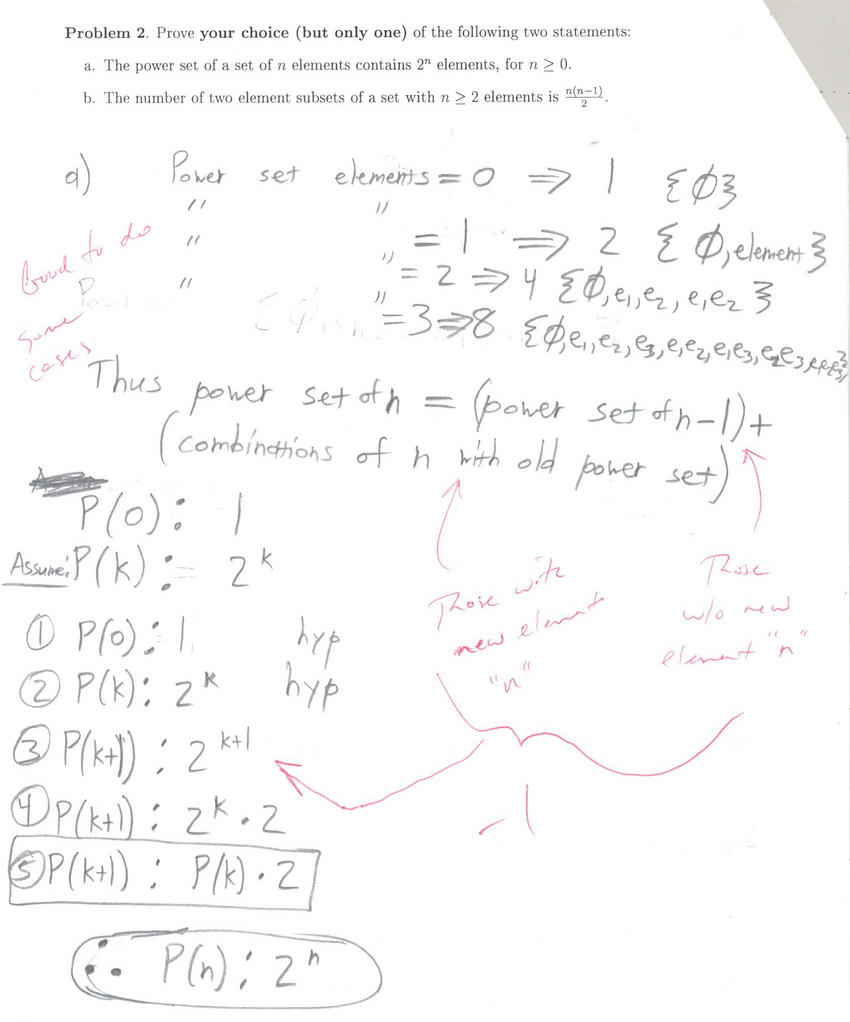 Problem 2. Prove your choice (but only one) of the following two statements:
a. The power set of a set of n elements contains 2ⁿ elements, for n ≥ 0.
b. The number of two element subsets of a set with n ≥ 2 elements is n(n−1)/2.
a) Power set elements = 0 ⇒ 1 {∅}
" " = 1 ⇒ 2 {∅, element}
" " = 2 ⇒ 4 {∅, e₁, e₂, e₁e₂}
" " = 3 ⇒ 8 {∅, e₁, e₂, e₃, e₁e₂, e₁e₃, e₂e₃, e₁e₂e₃}
Good to do
some
cases
Thus power set of n = (power set of n-1) +
(combinations of n with old power set)
P(0): 1
Assume: P(k) := 2ᵏ
Those with
new element
"n"
Those
w/o new
element "n"
① P(0): 1 hyp
② P(k): 2ᵏ hyp
③ P(k+1): 2ᵏ⁺¹
④ P(k+1): 2ᵏ · 2
-1
⑤ P(k+1): P(k) · 2
∴ P(n): 2ⁿ